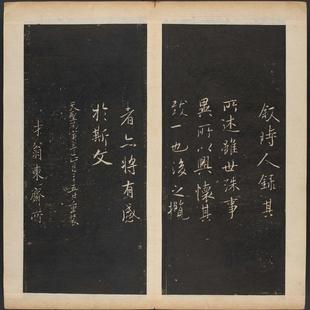 叙時人錄其
所述雖世殊事
異所以興懷其
致一也後之攬
者亦將有感
於斯文
才翁東齋所